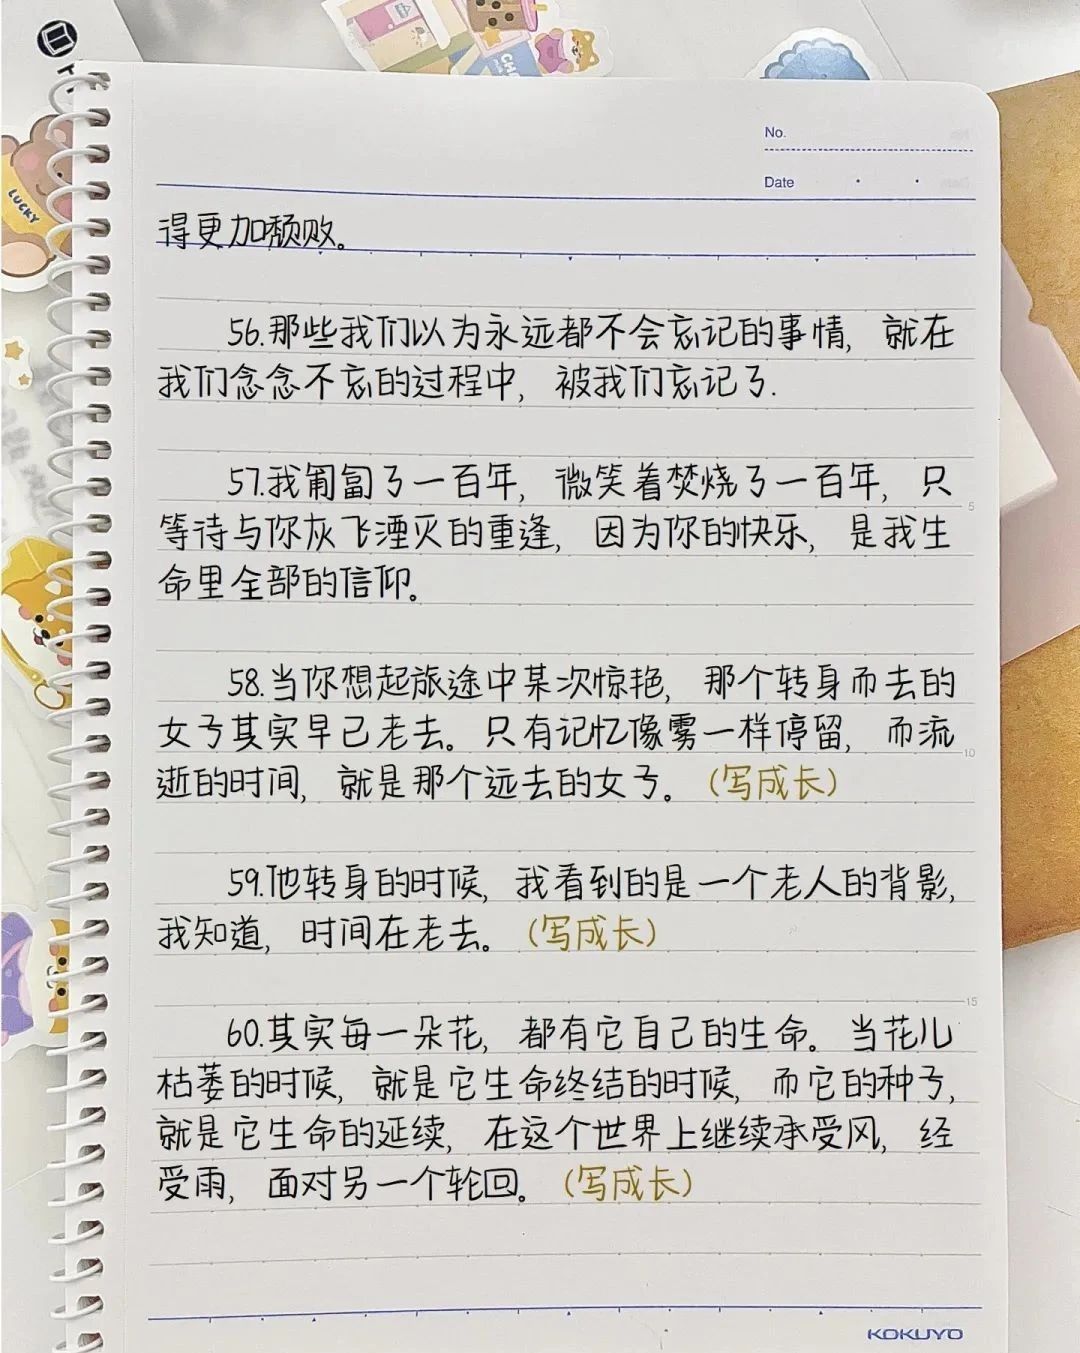 No.
Date
得更加颓败。
56.那些我们以为永远都不会忘记的事情,就在
我们念念不忘的过程中,被我们忘记了.
57.我匍匐了一百年,微笑着焚烧了一百年,只
等待与你灰飞湮灭的重逢,因为你的快乐,是我生
命里全部的信仰。
58.当你想起旅途中某次惊艳,那个转身而去的
女子其实早已老去。只有记忆像雾一样停留,而流
逝的时间,就是那个远去的女子。(写成长)
59.他转身的时候,我看到的是一个老人的背影,
我知道,时间在老去。(写成长)
60.其实每一朵花,都有它自己的生命。当花儿
枯萎的时候,就是它生命终结的时候,而它的种子,
就是它生命的延续,在这个世界上继续承受风,经
受雨,面对另一个轮回。(写成长)
5
10
15
KOKUYO
LUCKY